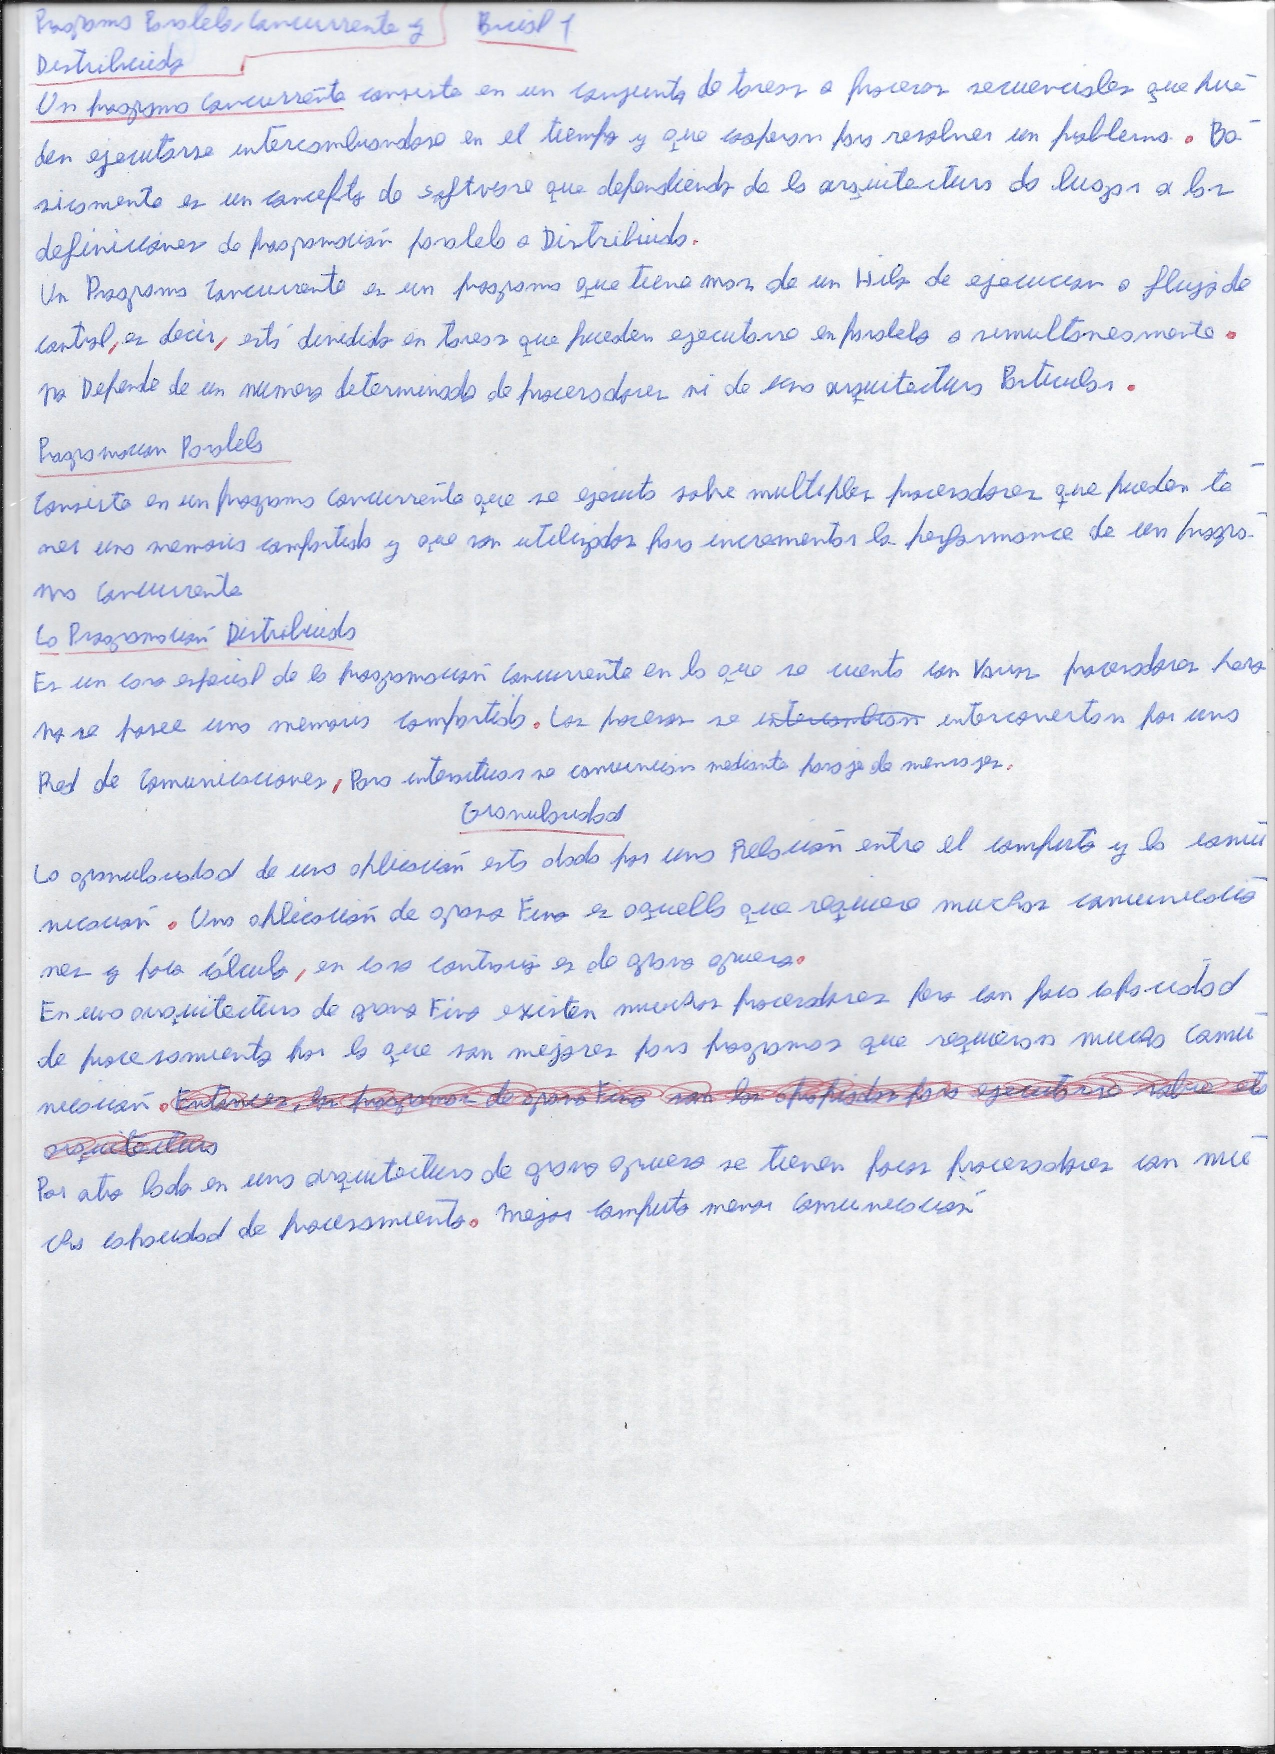 Programa Paralelo, Concurrente y
Distribuido
Un programa Concurrente consiste en un conjunto de tareas o procesos secuenciales que pue-
den ejecutarse intercambiandose en el tiempo y que cooperan para resolver un problema. Ba-
sicamente es un concepto de software que dependiendo de la arquitectura da lugar a las
definiciones de programación paralela o Distribuida.
Un Programa Concurrente es un programa que tiene mas de un Hilo de ejecucion o flujo de
control, es decir, está dividido en tareas que pueden ejecutarse en paralelo o simultaneamente.
no Depende de un numero determinado de procesadores ni de una arquitectura Particular.
Programacion Paralela
Consiste en un programa Concurrente que se ejecuta sobre multiples procesadores que pueden te-
ner una memoria compartida y que son utilizados para incrementar la performance de un progra-
ma Concurrente
La Programación Distribuida
Es un caso especial de la programación Concurrente en la que se cuenta con Varios procesadores pero
no se posee una memoria compartida. Los procesos se intercambian interconectan por una
Red de Comunicaciones, Para interactuar se comunican mediante pasaje de mensajes.
Granularidad
La granularidad de una aplicación esta dada por una Relación entre el computo y la comu
nicación. Una aplicación de grano Fino es aquella que requiere muchas comunicacio
nes y poco cálculo, en caso contrario es de grano grueso.
En una arquitectura de grano Fino existen muchos procesadores pero con poca capacidad
de procesamiento por lo que son mejores para programas que requieran mucha Comu
nicación. Entonces, los programas de grano Fino son los apropiados para ejecutarse sobre esta
arquitectura
Por otro lado en una arquitectura de grano grueso se tienen pocos procesadores con mu
cha capacidad de procesamiento. Mejor computo menor comunicación